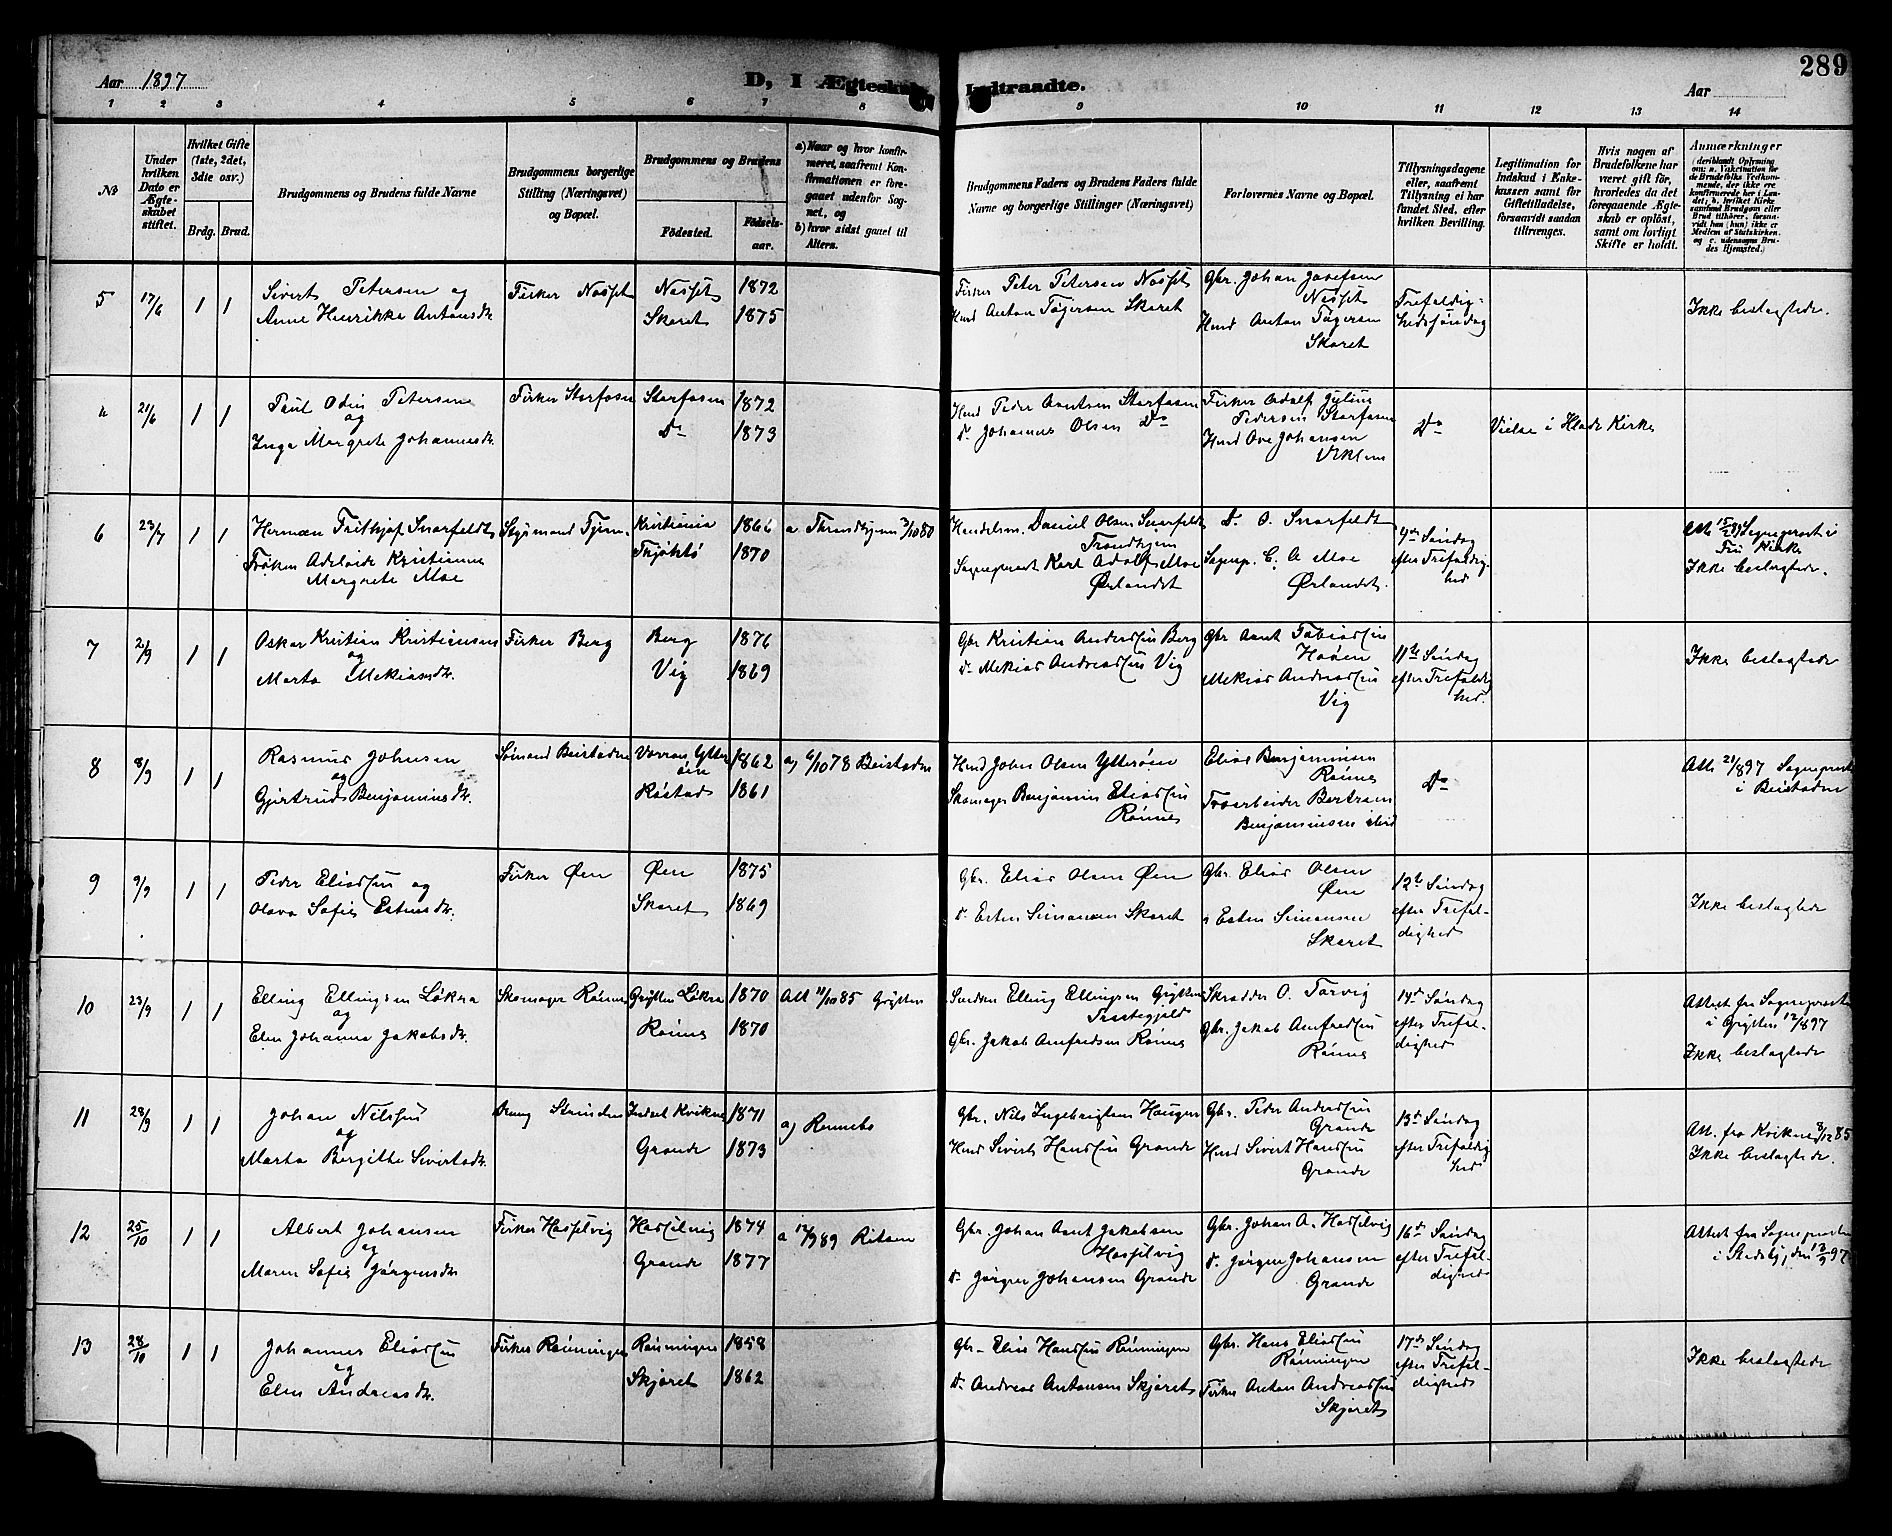 Aar 1897
D, I Ægteskab Indtraadte.
Aar
289
1 2 3 4 5 6 7 8 9 10 11 12 13 14
No
Under hvilken Dato er Ægteskabet stiftet.
Hvilket Gifte (1ste, 2det, 3die osv.)
Brdg. Brud.
Brudgommens og Brudens fulde Navne
Brudgommens borgerlige Stilling (Næringsvei) og Bopæl.
Brudgommens og Brudens
Födested.
Födselsaar.
a) Naar og hvor konfirmeret, saafremt Konfirmationen er foregaaet udenfor Sognet, og
b) hvor sidst gaaet til Alters.
Brudgommens Faders og Brudens Faders fulde Navne og borgerlige Stillinger (Næringsvei)
Forlovernes Navne og Bopæl.
Tillysningsdagene eller, saafremt Tillysning ei har fundet Sted, efter hvilken Bevilling.
Legitimation for Indskud i Enkekassen samt for Giftetilladelse, forsaavidt saadan tiltrænges.
Hvis nogen af Brudefolkene har været gift før, hvorledes da det foregaaende Ægteskab er oplöst, samt om lovligt Skifte er holdt.
Anmærkninger
(deriblandt Oplysning om: a. Vakcination for de Brudefolks Vedkommende, der ikke ere konfirmerede her i Landet; b. hvilket Kirkesamfund Brudgom eller Brud tilhører, forsaavidt han (hun) ikke er Medlem af Statskirken, og c. udensogns Brudes Hjemsted.)
5 17/6 1 1
Sivert Petersen og
Anne Henrikke Antonsdtr
Fisker Nesset
Nesset 1872
Skaret 1875
Fisker Peter Petersen Nesset
Husmd Anton Tøgersen Skaret
Gbr. Johan Josefsen
Nesset
Husmd Anton Tøgersen
Skaret
Trefoldig-
hedssøndag
Ikke beslægtede.
4 21/6 1 1
Paul Odin Petersen
og
Inga Margrete Johannesdtr.
Fisker Storfosen
Storfosen 1872
Do 1873
Husmd Peder Arntsen Storfosen
do Johannes Olsen Do
Fisker Adolf Julius
Pedersen Storfosen
Husmd Ove Johansen
Uklem
Do
Vielse i Hlade Kirke
6 23/7 1 1
Herman Frithjof Snarfeldt
Frøken Adelaide Kristianne
Margrete Moe
Styrmand Tjøm.
Kristiania 1866
Tjøtta 1870
a Throndhjem 3/10 80
Handelsm. Daniel Olsen Snarfeldt
Trondhjem
Sogneprest Karl Adolf Moe
Ørlandet
Do O. Snarfeldt
Sognep. C. A Moe
Ørlandet.
4de Søndag
efter Trefoldig-
hed
Att Sogneprest i
Fru Kirke
Ikke beslægtede.
7 2/9 1 1
Oskar Kristian Kristiansen
og
Marta Mekiasdtr.
Fisker Berg
Berg 1876
Vig 1869
Gbr Kristian Andreassen Berg
do Mekias Andreassen Vig
Gbr Arnt Tobiassen
Hoøen
Mekias Andreassen
Vig
11te Søndag
efter Trefoldig
hed.
Ikke beslægtede
8 8/9 1 1
Rasmus Johnsen
og
Gjertrud Benjaminsdtr.
Sømand Beistaden
Verran Ytter
øen 1862
Røstad 1861
a) 6/10 78 Beistaden
Husmd John Olsen Ytterøen
Skomager Benjamin Eliassen
Rønne
Elias Benjaminsen
Rønne
Træarbeider Bertram
Benjaminsen
Do
Att 21/8 97 Sogneprest
i Beistaden
9 9/9 1 1
Peder Eliassen og
Olava Sofie Estensdtr.
Fisker Øen
Øen 1875
Skaret 1869
Gbr. Elias Olsen Øen
do Esten Simonsen Skaret
Gbr. Elias Olsen
Øen
Esten Simonsen
Skaret
12te Søndag
efter Trefol-
dighed
Ikke beslægtede
10 23/9 1 1
Elling Ellingsen Løkra
og
Elen Johanna Jakobsdtr.
Skomager Rønne
Grytten Løkra 1870
Rønne 1870
Att 11/10 85 Grytten
Elling Ellingsen Grytten
Prestegjeld
Gbr. Jakob Arnfredsen Rønne
Skrædder O. Tarvig
Gbr. Jakob Arnfredsen
Rønne
14de Søndag
efter Trefol-
dighed
Attest fra Sognepresten
i Grytten 12/8 97
Ikke beslægtede
11 28/9 1 1
Johan Nilssen
og
Marta Bergitte Sivertsdtr.
Dreng Strinden
Indset Kvikne 1871
Grande 1873
a) Rennebo
Gbr. Nils Ingebrigtsen Haugen
Husmd Sivert Hanssen Grande
Gbr. Peder Andreassen
Grande
Husmd Sivert Hanssen
Grande
13de Søndag
efter Trefoldig
hed
Att. fra Kvikne 8/12 85
Ikke beslægtede.
12 25/10 1 1
Albert Johansen
og
Maren Sofie Jørgensdtr
Fisker Hasselvig
Hasselvig 1874
Grande 1877
a 12/9 89 Rissen
Gbr. Johan Arnt Jakobsen
Hasselvig
do Jørgen Johansen Grande
Gbr. Johan A. Hasselvig
do Jørgen Johansen
Grande
16de Søndag
efter Trefol-
dighed
Attest fra Sognepresten
i Stadsby, den 97
13 28/10 1 1
Johannes Eliassen
og
Elen Andreasdtr.
Fisker Rønningen
Rønningen 1858
Skjøret 1862
Gbr Elias Hanssen Rønningen
do Andreas Antonsen Skjøret
Gbr. Hans Eliassen
Rønningen
Fisker Anton Andreassen
Skjøret
17de Søndag
efter Trefol-
dighed
Ikke beslægtede